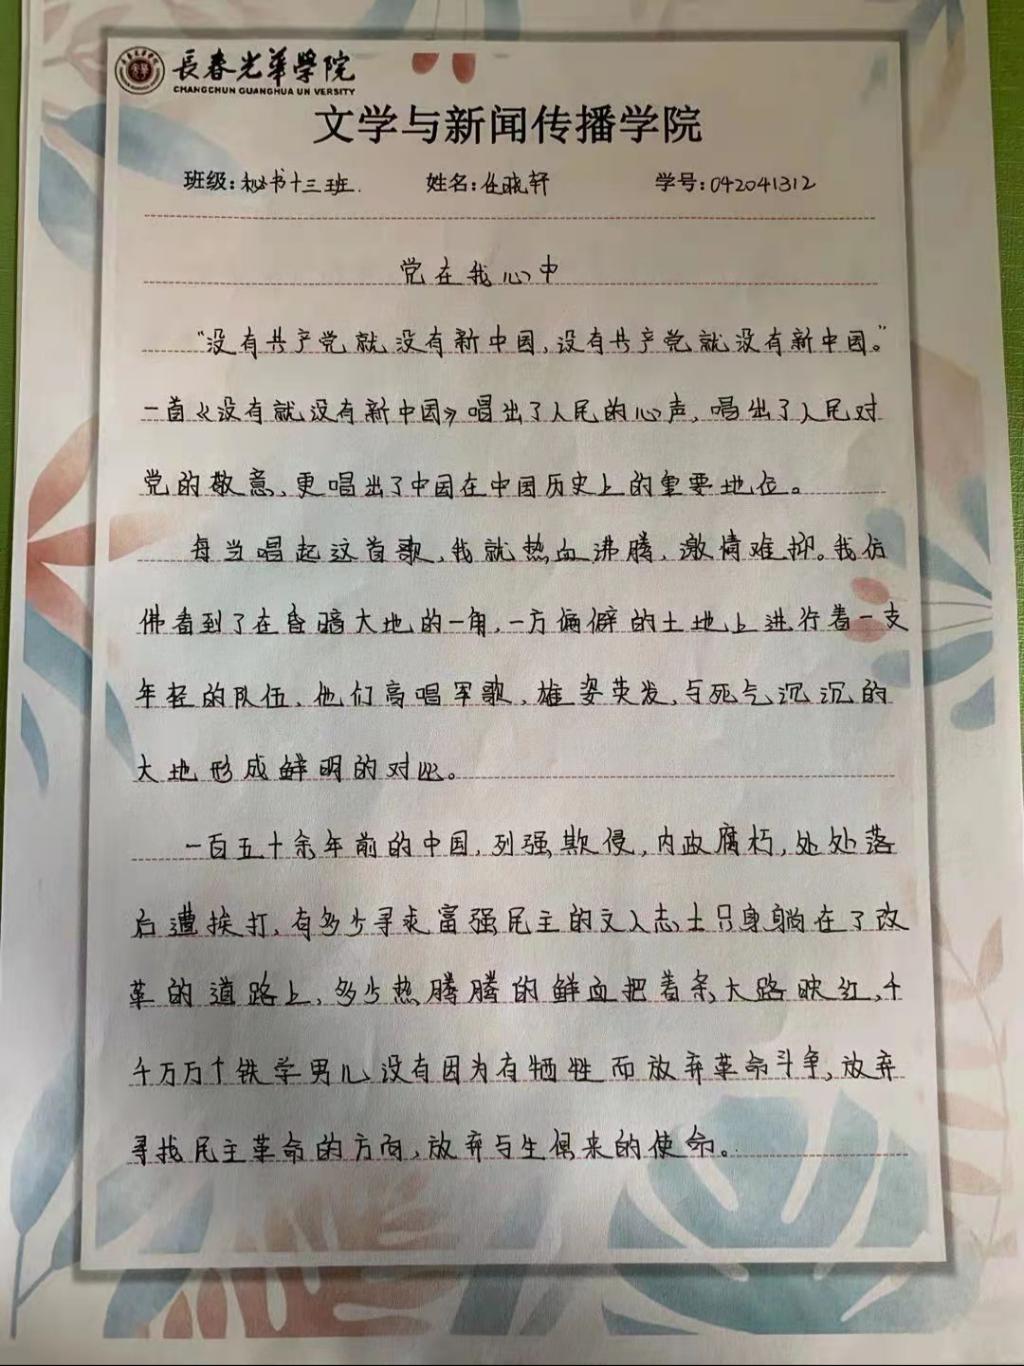 長春光華學院
CHANGCHUN GUANGHUA UN VERSITY
文学与新闻传播学院
班级:秘书十三班. 姓名:任晓轩 学号:042041312
党在我心中
“没有共产党就没有新中国,没有共产党就没有新中国。”
一首《没有就没有新中国》唱出了人民的心声,唱出了人民对
党的敬意,更唱出了中国在中国历史上的重要地位。
每当唱起这首歌,我就热血沸腾,激情难抑。我仿
佛看到了在昏暗大地的一角,一方偏僻的土地上进行着一支
年轻的队伍,他们高唱军歌,雄姿英发,与死气沉沉的
大地形成鲜明的对比。
一百五十余年前的中国,列强欺侵,内政腐朽,处处落
后遭挨打,有多少寻求富强民主的文人志士只身躺在了改
革的道路上,多少热腾腾的鲜血把着条大路映红,千
千万万个铁学男儿没有因为有牺牲而放弃革命斗争,放弃
寻找民主革命的方向,放弃与生俱来的使命。